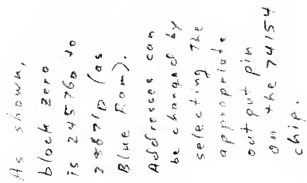 As shown,
block zero
is 24576D to
28671D (as
Blue Ram).
Addresses can
be changed by
selecting the
appropriate
output pin
on the 74154
chip.